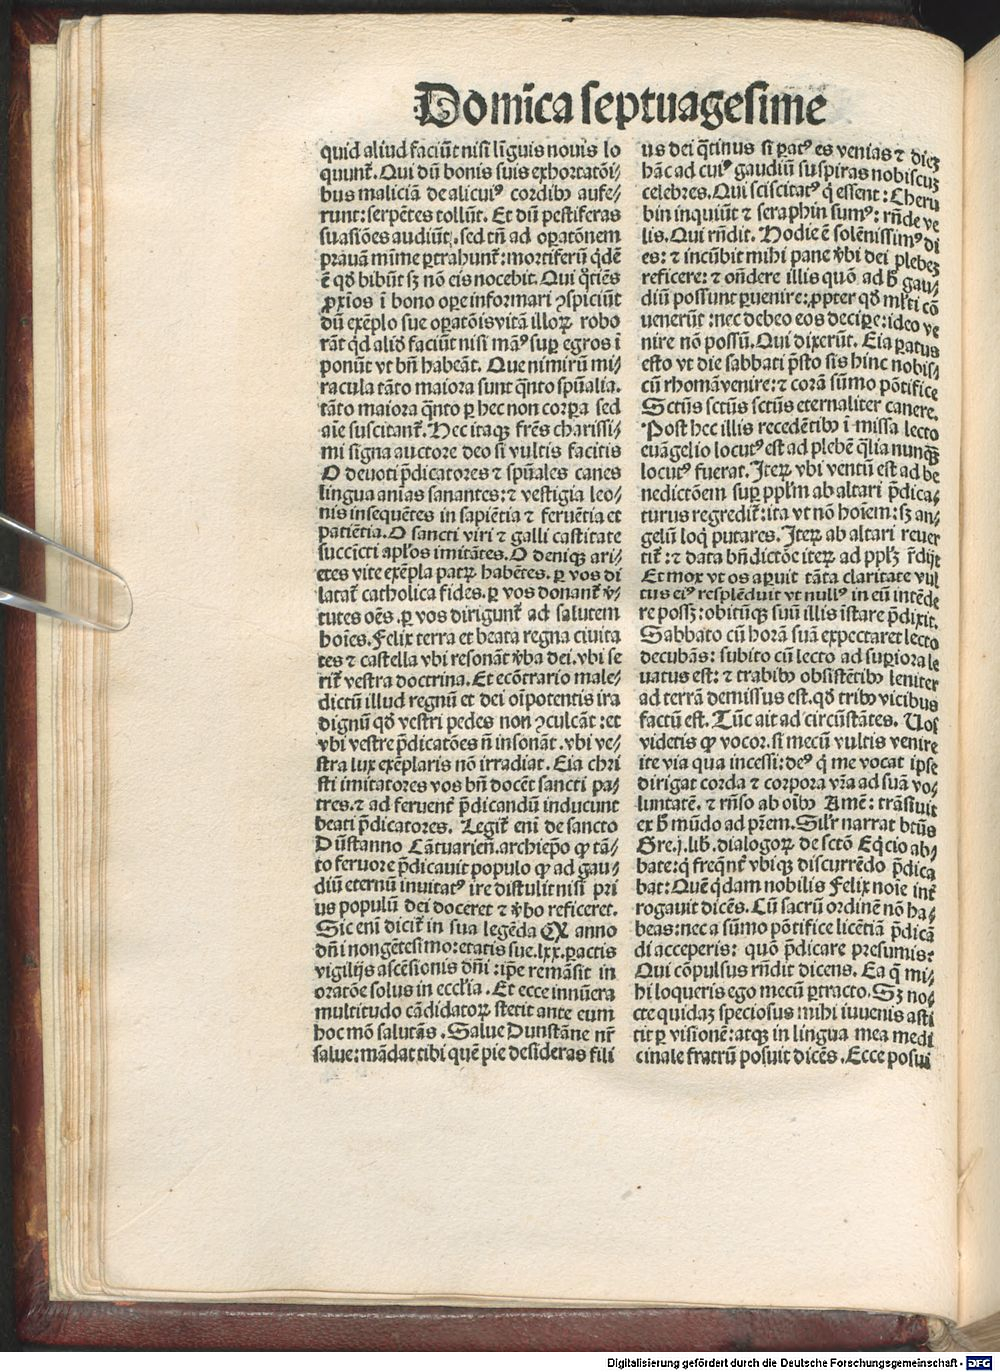 Domīca septuagesime
quid aliud faciūt nisi līguis nouis lo
quunt᷑. Qui dū bonis suis exhortatōi/
bus maliciā de alicui⁹ cordibꝫ aufe/
runt: serpētes tollūt. Et dū pestiferas
suasiōes audiūt, sed tn̄ ad oꝑatōnem
prauam mīme ꝑtrahunt᷑: mortiferū qdē
ē qđ bibūt sꝫ nō eis nocebit. Qui q̄tiēs
ꝓxīos ī bono oꝑe informari ꝯspiciūt
dū exēplo sue oꝑatōis vitā illoꝝ robo
rāt qd aliđ faciūt nisi man⁹ suꝑ egros ī
ponūt vt bn̄ habeāt. Que nimirū mi/
racula tāto maiora sunt q̄nto spūalia.
tāto maiora q̄nto ꝑ hec non corꝑa sed
aīe suscitant᷑. Hec itaqꝫ frēs charissi/
mi signa auctore deo si vultis facitis
O deuoti p̄dicatores ⁊ spūales canes
lingua anias sanantes: ⁊ vestigia leo/
nis insequētes in sapiētia ⁊ feruētia et
patiētia. O sancti viri ⁊ galli castitate
succīcti apłos imitātes. O deniqꝫ ari/
etes vite exēpla patꝝ habētes. ꝑ vos di
latat᷑ catholica fides. ꝑ vos donant᷑ v̓/
tutes oēs. ꝑ vos dirigunt᷑ ad salutem
hoīes. Felix terra et beata regna ciuita
tes ⁊ castella vbi resonāt v̓ba dei. vbi se
rit᷑ vestra doctrina. Et ecōtrario male/
dictū illud regnū et dei oīpotentis ira
dignū qđ vestri pedes non ꝯculcāt: et
vbi vestre p̄dicatōes n̄ insonāt. vbi ve/
stra lux exēplaris nō irradiat. Eia chri
sti imitatores vos bn̄ docēt sancti pa/
tres. ⁊ ad feruent᷑ p̄dicandū inducunt
beati p̄dicatores. Legit᷑ eni de sancto
Dūstanno Cātuarien̄. archiepo qꝫ tā/
to feruore p̄dicauit populo qꝫ ad gau/
diū eternū inuitat⁹ ire distulit nisi pri
us populū dei doceret ⁊ v̓bo reficeret.
Sic eni dicit᷑ in sua legēda CX anno
dn̄i nongētesimo: etatis sue. lxx. ꝑactis
vigilijs ascēsionis dn̄i: ipe remāsit in
oratōe solus in eccłia. Et ecce innūera
multitudo cādidatoꝝ stetit ante eum
hoc mō salutās. Salue Dunstāne nr̄
salue: mādat tibi quē pie desideras fili
us dei q̄tinus si ꝑat⁹ es venias ⁊ dieꝫ
hāc ad cui⁹ gaudiū suspiras nobiscuꝫ
celebres. Qui sciscitat⁹ q̄ essent: Cheru
bin inquiūt ⁊ seraphin sum⁹: rn̄de ve
lis. Qui rn̄dit. Hodie ē solēnissim⁹ di
es: ⁊ incūbit mihi pane v̓bi dei plebeꝫ
reficere: ⁊ on̄dere illis quō ad ħ gau/
diū possunt ꝑuenire: ꝓpter qđ młti cō
uenerūt: nec debeo eos deciꝑe: ideo ve
nire nō possū. Qui dixerūt. Eia ꝑatus
esto vt die sabbati p̄sto sis hinc nobis/
cū rhomā venire: ⁊ corā sūmo pōtifice
Sctūs sctūs sctūs eternaliter canere.
Post hec illis recedētibꝫ ī missa lecto
euāgelio locut⁹ est ad plebē q̄lia nunqꝫ
locut⁹ fuerat. Iteꝝ vbi ventū est ad be
nedictōem suꝑ ppłm ab altari p̄dica/
turus regredit᷑: ita vt nō hoīem: sꝫ an/
gelū loq̄ putares. Iteꝝ ab altari reuer
tit᷑: ⁊ data bn̄dictōe iteꝝ ad ppłꝫ r̄dijt
Et mox vt os aꝑuit tāta claritate vul
tus ei⁹ resplēduit vt null⁹ in eū intēde
re possꝫ: obitūqꝫ suū illis īstare p̄dixit.
Sabbato cū horā suā expectaret lecto
decubās: subito cū lecto ad suꝑiora le
uatus est: ⁊ trabibꝫ obsistētibꝫ leniter
ad terrā demissus est. qđ tribꝫ vicibus
factū est. Tūc ait ad circūstātes. Uos
videtis qꝫ vocor. si mecū vultis venire
ite via qua incessi: de⁹ q̄ me vocat ipse
dirigat corda ⁊ corpora vr̄a ad suā vo/
luntatē. ⁊ rn̄so ab oībꝫ Amē: trāsiuit
ex ħ mūdo ad p̄rem. Silr narrat btūs
Gre. j. lib. dialogoꝝ de sctō Eq̄cio ab/
bate: q̄ freq̄nt᷑ vbiqꝫ discurrēdo p̄dica
bat: Quē q̄dam nobilis Felix noīe int᷑
rogauit dicēs. Cū sacrū ordinē nō ha/
beas: nec a sūmo pōtifice licētiā p̄dicā
di acceperis: quō p̄dicare presumis?
Qui cōpulsus rn̄dit dicens. Ea q̄ mi/
hi loqueris ego mecū ꝑtracto. Sꝫ no/
cte quidaꝫ speciosus mihi iuuenis asti
tit ꝑ visionē: atqꝫ in lingua mea medi
cinale fratrū posuit dicēs. Ecce posui
Digitalisierung gefördert durch die Deutsche Forschungsgemeinschaft - DFG